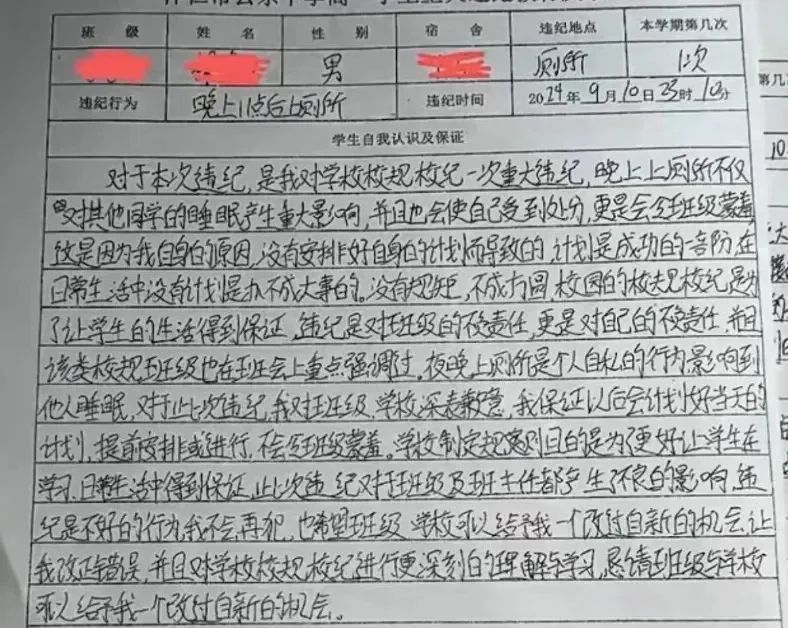 班 级 姓 名 性 别 宿 舍 违纪地点 本学期第几次
男 厕所 1次
违纪行为 晚上11点后上厕所 违纪时间 2024年9月10日23时10分
学生自我认识及保证
对于本次违纪,是我对学校校规校纪一次重大违纪,晚上上厕所不仅
对其他同学的睡眠产生重大影响,并且也会使自己受到处分,更是会令班级蒙羞
这是因为我自身的原因,没有安排好自身的计划而导致的,计划是成功的一阶,在
日常生活中没有计划是办不成大事的。没有规矩,不成方圆,校园的校规校纪是为
了让学生的生活得到保证,违纪是对班级的不负责任,更是对自己的不负责任,并且
该类校规班级也在班会上重点强调过,夜晚上厕所是个人自私的行为影响到
他人睡眠,对于此次违纪,我对班级、学校深表歉意,我保证以后会计划好当天的
计划,提前安排或进行,不会令班级蒙羞。学校制定规章则目的是为了更好让学生在
学习、日常生活中得到保证,此次违纪对于班级及班主任都产生了不良的影响,违
纪是不好的行为,我不会再犯,也希望班级 学校可以给予我一个改过自新的机会,让
我改正错误,并且对学校校规校纪进行更深刻的理解与学习,恳请班级与学校
可以给予我一个改过自新的机会。
第几
10